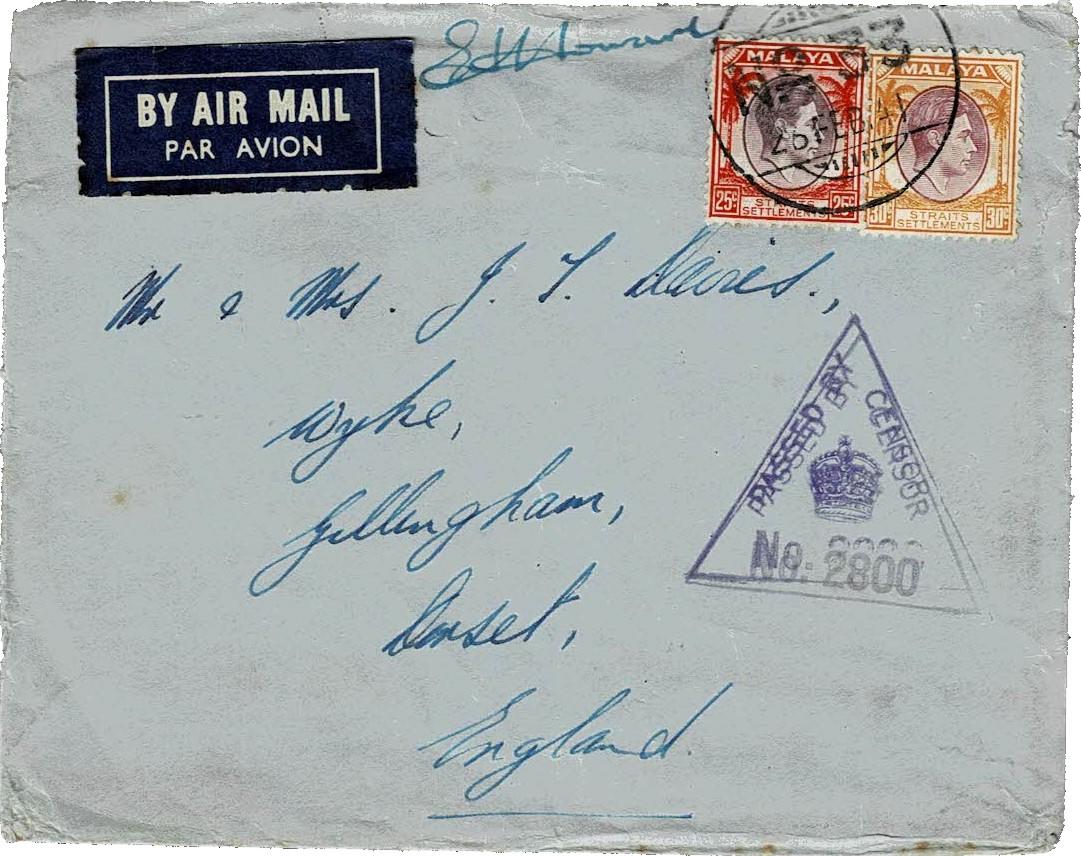 BY AIR MAIL
PAR AVION
MALAYA
25c STRAITS SETTLEMENTS 25c
MALAYA
30c STRAITS SETTLEMENTS 30c
26 FEB 41
Mr & Mrs. J. T. Davies.,
Wyke,
Gillingham,
Dorset,
England.
PASSED BY CENSOR
No. 2800